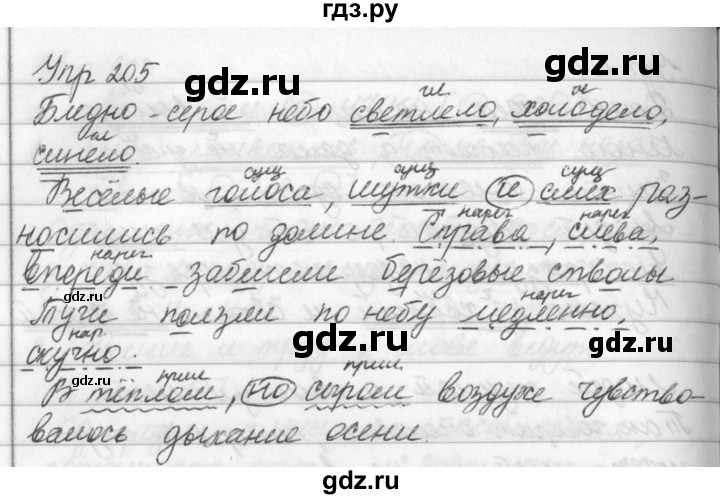 гдз.ру
Упр 205
gdz.ru gdz.ru
гл гл
Бледно-серое небо светлело, холодело,
гл
синело.
сущ сущ сущ
Весёлые голоса, шутки и смех раз-
нареч нареч
носились по долине. Справа, слева,
нареч
впереди забелели берёзовые стволы
gdz.ru gdz.ru
нареч
Тучи ползли по небу медленно,
нар.
скучно.
прил прил.
В тёплом, но сыром воздухе чувство-
валось дыхание осени.
gdz.ru gdz.ru
gdz.ru